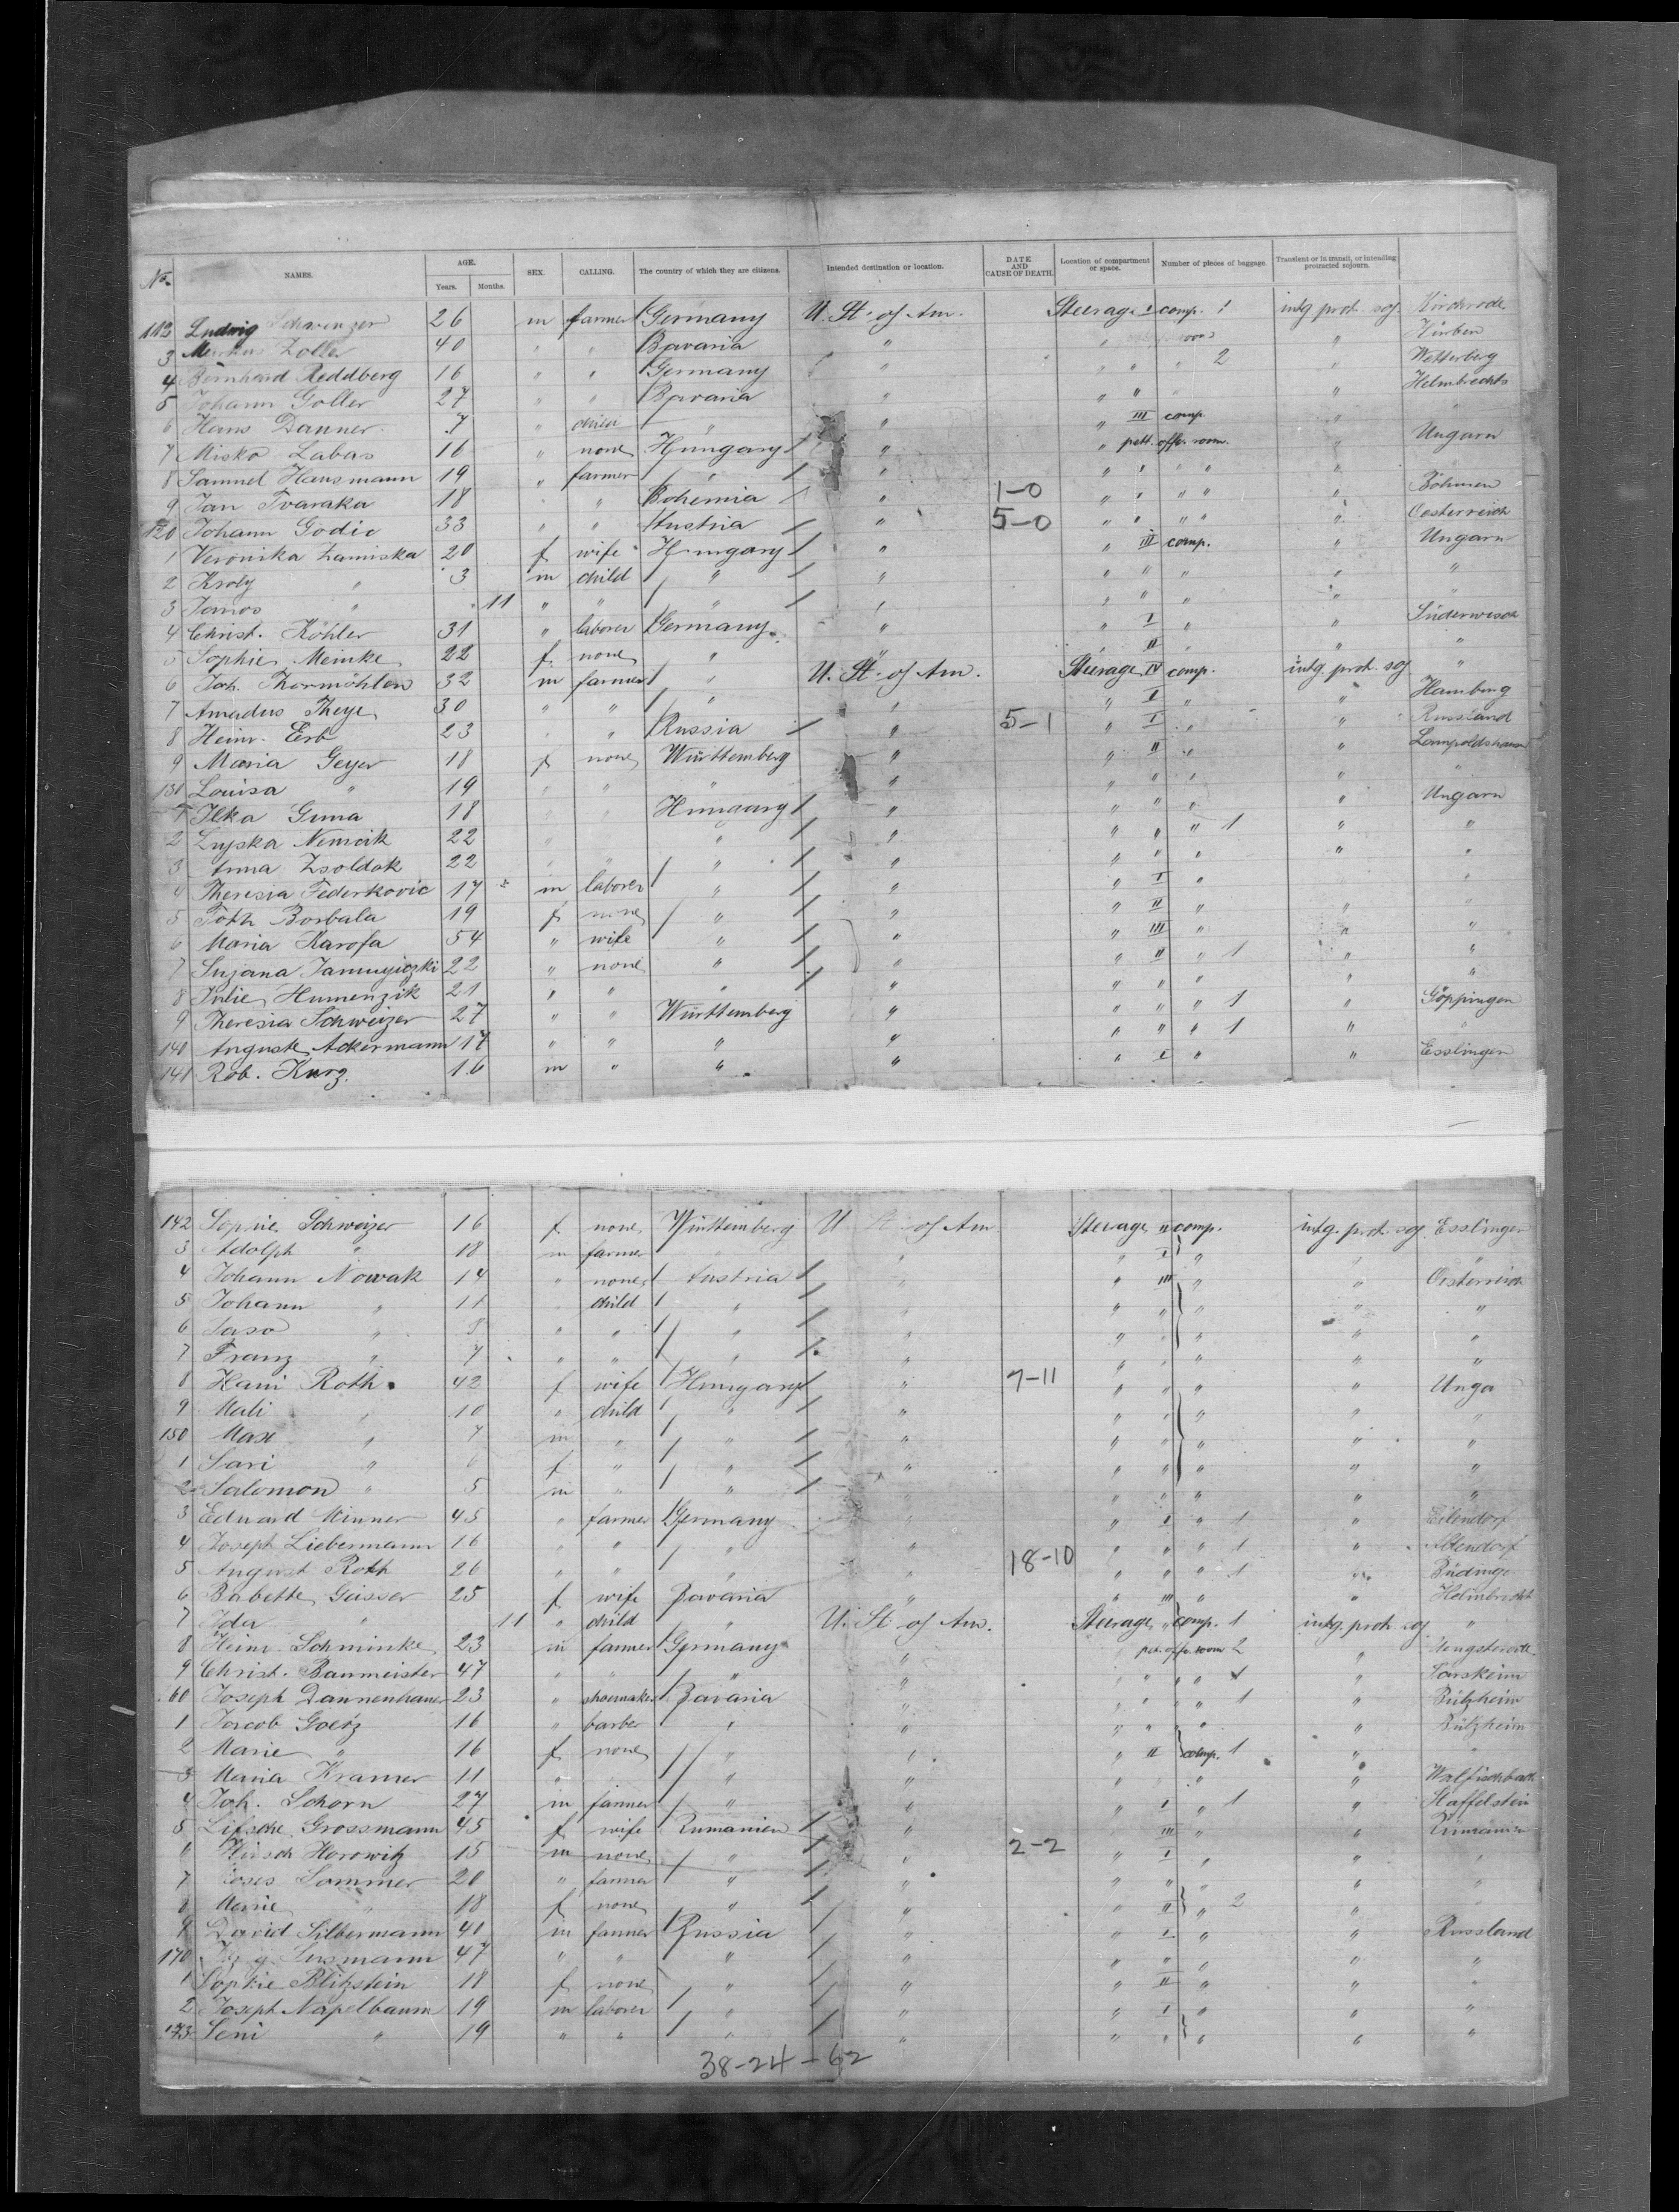 No. NAMES. AGE. Years. Months. SEX. CALLING. The country of which they are citizens. Intended destination or location. DATE AND CAUSE OF DEATH. Location of compartment or space. Number of pieces of baggage. Transient or in transit, or intending protracted sojourn.
112 Ludwig 26 m farmer Germany U. St. of Am. Steerage I comp. 1 intg prot. soj Kirchrode
3 Zoller 40 " " Bavaria " " "
4 Bernhard Reddberg 16 " " Germany " " " " 2 " Wetterberg
5 Johann Goller 27 " " Bavaria " " " " " Helmbrechts
6 Hans Danner 7 " child " " " III comp " "
7 Misko Labas 16 " none Hungary " " pett. offr. room. " Ungarn
8 Samuel Hausmann 19 " farmer " " " " " " "
9 Jan Tvaraka 18 " " Bohemia " 1-0 " " " " " Böhmen
120 Johann Godic 33 " " Austria " 5-0 " " " " " Oesterreich
1 Veronika Zamiska 20 f wife Hungary " " III comp. " Ungarn
2 Kroly " 3 m child " " " " " " "
3 Janos " 11 " " " " " " " " "
4 Christ. Köhler 31 " laborer Germany " " I " Süderwisch
5 Sophie Meinke 22 f none " " " II " " "
6 Joh. Thormöhlen 32 m farmer " U. St. of Am. Steerage IV comp. intg. prot. soj "
7 Amadus Theye 30 " " " " " I " " Hamburg
8 Heinr. Erb 23 " " Russia " 5-1 " I " " Russland
9 Maria Geyer 18 f none Württemberg " " II " "
131 Louisa " 19 " " " " " " " " "
1 Ilka Guna 18 " " Hungary " " " " " Ungarn
2 Nemcik 22 " " " " " " " 1 " "
3 Anna Zsoldak 22 " " " " " " " " "
4 Theresia Federkovic 17 m laborer " " " I " "
5 Toth Borbala 19 f none " " " II " " "
6 Maria Karofa 54 " wife " " " III " " "
7 22 " none " " " II " 1 " "
8 Julie Humenzik 21 " " " " " " " " "
9 Theresia Schweizer 27 " " Württemberg " " " " 1 " Göppingen
140 Auguste Ackermann 17 " " " " " " " 1 " "
141 Rob. Kurz. 16 m " " " " I " " Esslingen
142 Sophie Schweizer 16 f none Württemberg U. St. of Am Steerage II comp. intg. prot. soj Esslingen
3 Adolph " 18 m farmer " " " I " " "
4 Johann Nowak 14 " none Austria " " III " " Oesterreich
5 Johann " 11 " child " " " " " " "
6 " " " " " " " " " "
7 Franz " 7 " " " " " " " " "
8 Hani Roth 42 f wife Hungary " 7-11 " " " " Unga
9 Mali " 10 " child " " " " " " "
150 Max " 7 m " " " " " " " "
1 Sari " 6 f " " " " " " " "
2 Salomon " 5 m " " " " " " " "
3 Eduard Minner 45 " farmer Germany " " I " 1 " Eilendorf
4 Joseph Liebermann 16 " " " " " " " 1 "
5 August Roth 26 " " " " 18-10 " " " 1 "
6 Babette Gasser 25 f wife Bavaria " " III " " Helmbrecht
7 Ida " 11 " child " U. St. of Am. Steerage " comp. 1 intg. prot. soj "
8 Heinr. Schminke 23 m farmer Germany " pet. offr. room 2 "
9 Christ. Baumeister 47 " " " " " " " 1 "
160 Joseph Dannenhauer 23 " shoemaker Bavaria " " " " 1 " Bülzheim
1 Jacob Goetz 16 " barber " " " " " " Bülzheim
2 Marie " 16 f none " " " II comp. 1 " "
3 Maria Kramer 11 " " " " " " " "
4 Joh. Schorn 27 m farmer " " " I " 1 " Staffelstein
5 Lifsche Grossmann 45 f wife Rumanien " III " "
6 Hirsch Horowitz 15 m none " " 2-2 " I " " "
7 Moses Sommer 20 " farmer " " " " " " "
8 " 18 f none " " " II " 2 " "
9 David Silbermann 41 m farmer Russia " " I " " Russland
170 Susmann 47 " " " " " " " " "
1 Sophie Blitzstein 18 f none " " " II " " "
2 Joseph Napelbaum 19 m laborer " " " I " " "
173 Leni " 19 " " " " " " " " "
38-24-62